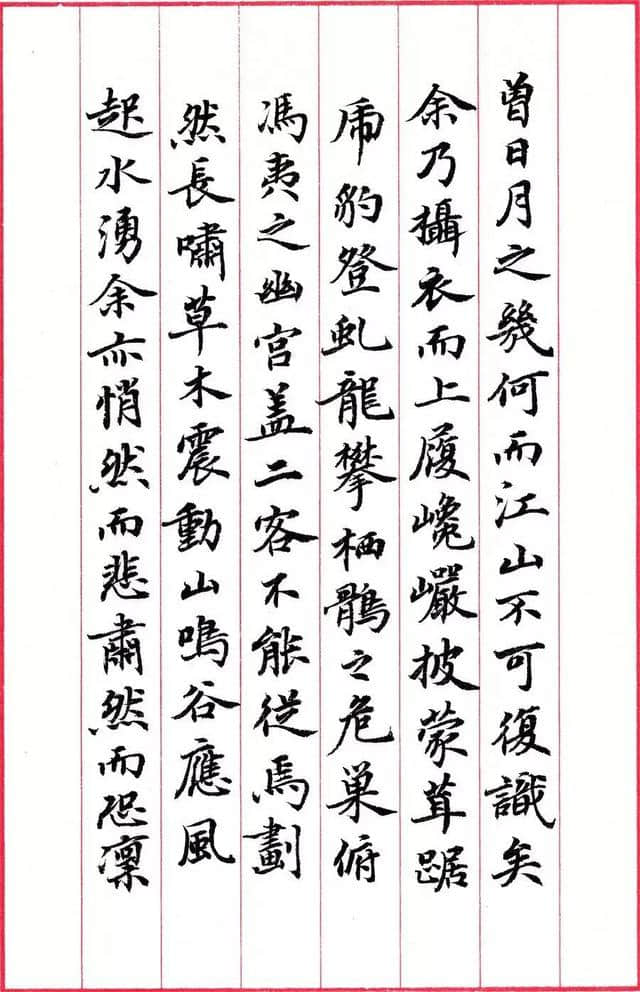 曾日月之幾何而江山不可復識矣
余乃攝衣而上履巉巖披蒙茸踞
虎豹登虬龍攀栖鶻之危巢俯
馮夷之幽宮盖二客不能從焉劃
然長嘯草木震動山鳴谷應風
起水湧余亦悄然而悲肅然而恐凜